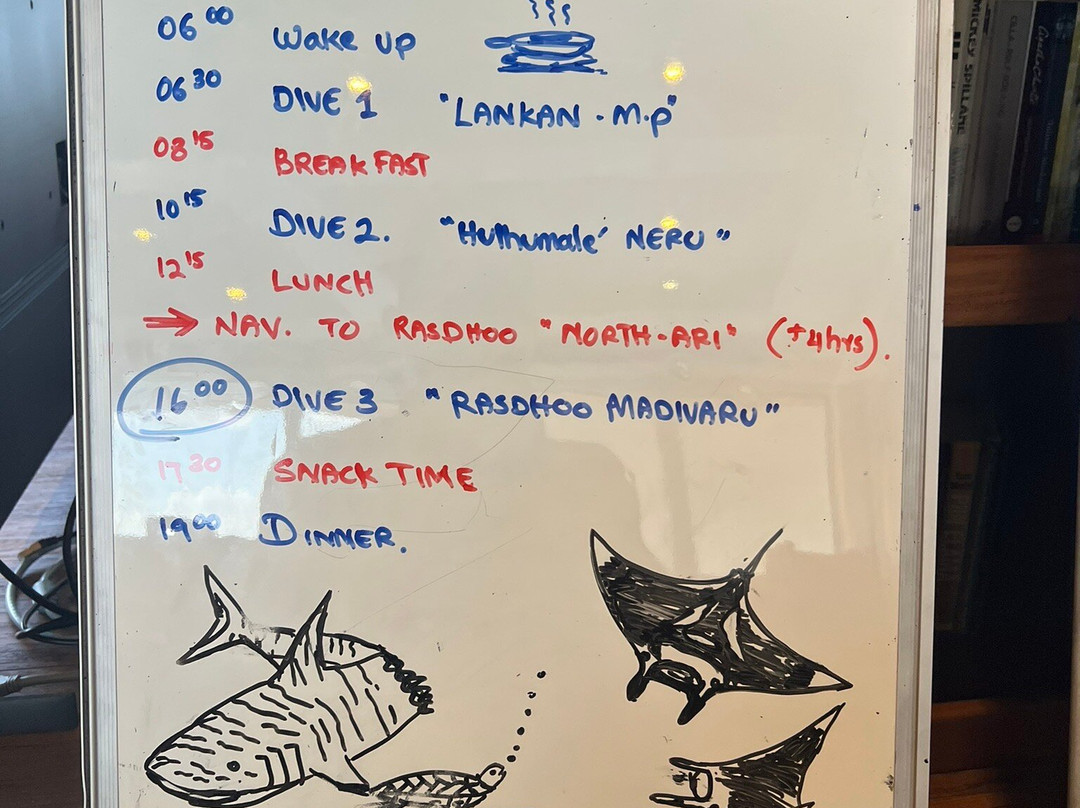 06 00 Wake up
06 30 DIVE 1 "LANKAN - M.P"
08 15 BREAKFAST
10 15 DIVE 2. "Hulhumale' NERU"
12 15 LUNCH
→ NAV. TO RASDHOO "NORTH-ARI" (±4hrs).
16 00 DIVE 3 "RASDHOO MADIVARU"
17 30 SNACK TIME
19 00 DINNER.
MICKEY SPILLANE